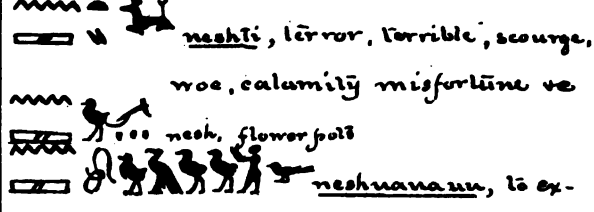 neshti, terror, terrible, scourge,
woe, calamity misfortune ve
nesh, flower pots
neshuanauu, to ex-